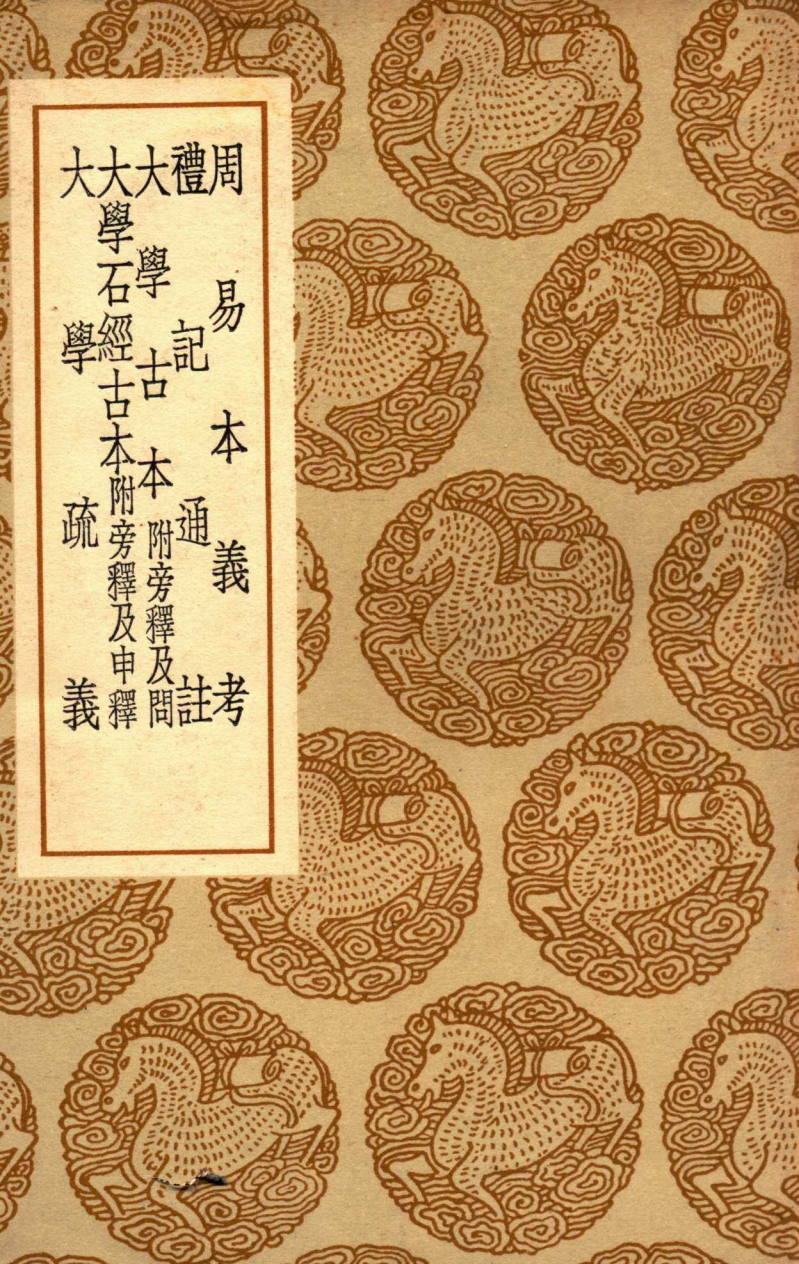 周易本義考
禮記通註
大學古本附旁釋及問
大學石經古本附旁釋及申釋
大學疏義